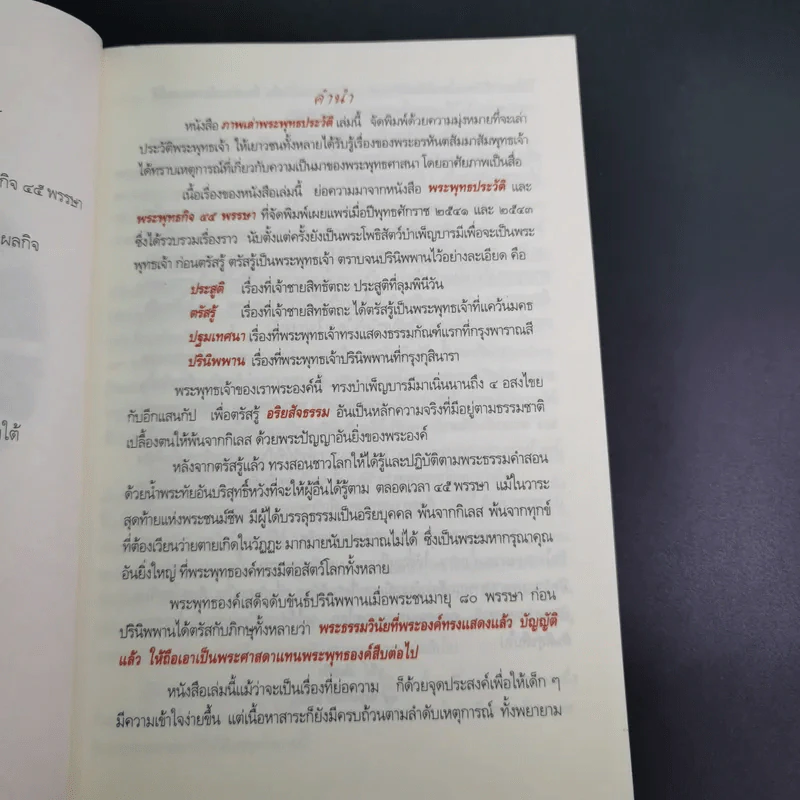 กิจ ๔๕ พรรษา
ผลกิจ
ใต้
คำนำ
หนังสือ ภาพเล่าพระพุทธประวัติ เล่มนี้ จัดพิมพ์ด้วยความมุ่งหมายที่จะเล่า
ประวัติพระพุทธเจ้า ให้เยาวชนทั้งหลายได้รับรู้เรื่องของพระอรหันตสัมมาสัมพุทธเจ้า
ได้ทราบเหตุการณ์ที่เกี่ยวกับความเป็นมาของพระพุทธศาสนา โดยอาศัยภาพเป็นสื่อ
เนื้อเรื่องของหนังสือเล่มนี้ ย่อความมาจากหนังสือ พระพุทธประวัติ และ
พระพุทธกิจ ๔๕ พรรษา ที่จัดพิมพ์เผยแพร่เมื่อปีพุทธศักราช ๒๕๔๑ และ ๒๕๔๓
ซึ่งได้รวบรวมเรื่องราว นับตั้งแต่ครั้งยังเป็นพระโพธิสัตว์บำเพ็ญบารมีเพื่อจะเป็นพระ
พุทธเจ้า ก่อนตรัสรู้ ตรัสรู้เป็นพระพุทธเจ้า ตราบจนปรินิพพานไว้อย่างละเอียด คือ
ประสูติ เรื่องที่เจ้าชายสิทธัตถะ ประสูติที่ลุมพินีวัน
ตรัสรู้ เรื่องที่เจ้าชายสิทธัตถะ ได้ตรัสรู้เป็นพระพุทธเจ้าที่แคว้นมคธ
ปฐมเทศนา เรื่องที่พระพุทธเจ้าทรงแสดงธรรมกัณฑ์แรกที่กรุงพาราณสี
ปรินิพพาน เรื่องที่พระพุทธเจ้าปรินิพพานที่กรุงกุสินารา
พระพุทธเจ้าของเราพระองค์นี้ ทรงบำเพ็ญบารมีมาเนิ่นนานถึง ๔ อสงไขย
กับอีกแสนกัป เพื่อตรัสรู้ อริยสัจธรรม อันเป็นหลักความจริงที่มีอยู่ตามธรรมชาติ
เปลื้องตนให้พ้นจากกิเลส ด้วยพระปัญญาอันยิ่งของพระองค์
หลังจากตรัสรู้แล้ว ทรงสอนชาวโลกให้ได้รู้และปฏิบัติตามพระธรรมคำสอน
ด้วยน้ำพระทัยอันบริสุทธิ์หวังที่จะให้ผู้อื่นได้รู้ตาม ตลอดเวลา ๔๕ พรรษา แม้ในวาระ
สุดท้ายแห่งพระชนม์ชีพ มีผู้ได้บรรลุธรรมเป็นอริยบุคคล พ้นจากกิเลส พ้นจากทุกข์
ที่ต้องเวียนว่ายตายเกิดในวัฏฏะ มากมายนับประมาณไม่ได้ ซึ่งเป็นพระมหากรุณาคุณ
อันยิ่งใหญ่ ที่พระพุทธองค์ทรงมีต่อสัตว์โลกทั้งหลาย
พระพุทธองค์เสด็จดับขันธ์ปรินิพพานเมื่อพระชนมายุ ๘๐ พรรษา ก่อน
ปรินิพพานได้ตรัสกับภิกษุทั้งหลายว่า พระธรรมวินัยที่พระองค์ทรงแสดงแล้ว บัญญัติ
แล้ว ให้ถือเอาเป็นพระศาสดาแทนพระพุทธองค์สืบต่อไป
หนังสือเล่มนี้แม้ว่าจะเป็นเรื่องที่ย่อความ ก็ด้วยจุดประสงค์เพื่อให้เด็ก ๆ
มีความเข้าใจง่ายขึ้น แต่เนื้อหาสาระก็ยังมีครบถ้วนตามลำดับเหตุการณ์ ทั้งพยายาม